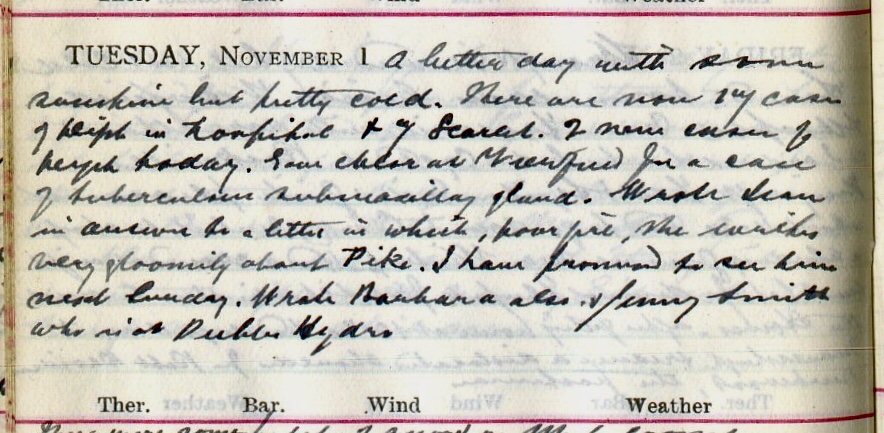 Ther. Bar. Wind Weather
TUESDAY, NOVEMBER 1 A better day with some
sunshine but pretty cold. There are now 17 cases
of diph in hospital & 7 Scarlet. 2 new cases of
diph today. Gave chlor at for a case
of tubercular submaxillary gland. Wrote Jean
in answer to a letter in which, poor girl, she writes
very gloomily about Pike. I have promised to see him
next Sunday. Wrote Barbara also & Jenny Smith
who is at Peebles Hydro
Ther. Bar. Wind Weather